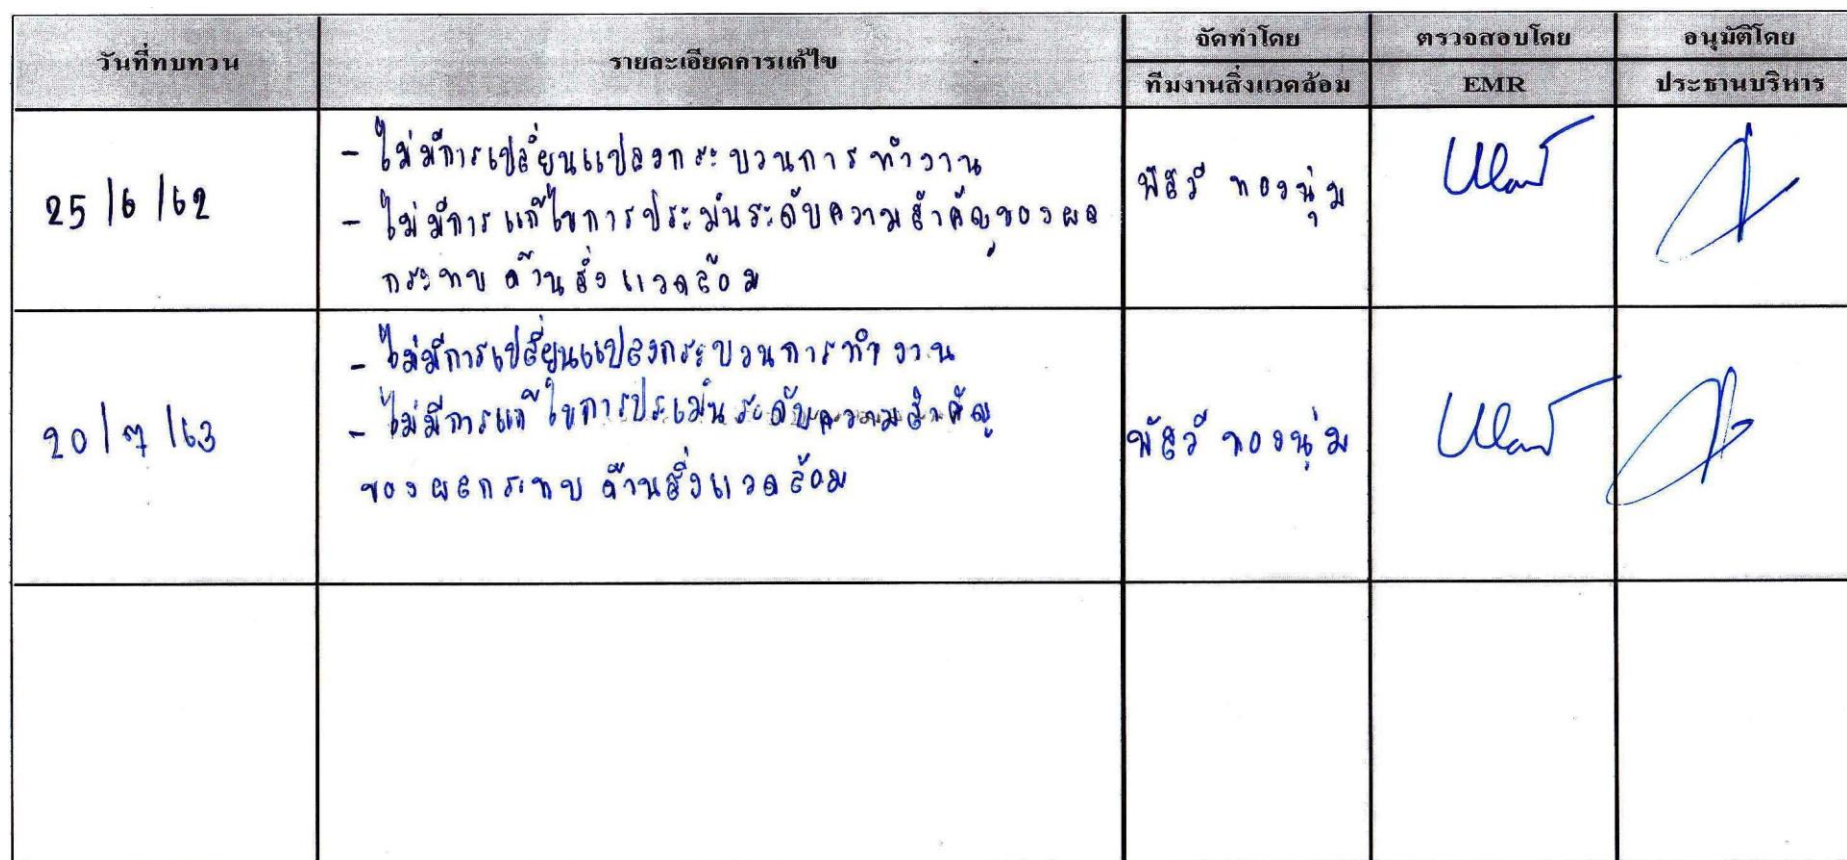 วันที่ทบทวน รายละเอียดการแก้ไข จัดทำโดย ตรวจสอบโดย อนุมัติโดย
ทีมงานสิ่งแวดล้อม EMR ประธานบริหาร
25/6/62
- ไม่มีการเปลี่ยนแปลงกระบวนการทำงาน
- ไม่มีการแก้ไขการประเมินระดับความสำคัญของผล
กระทบด้านสิ่งแวดล้อม
พัชรี ทองนุ่ม
20/7/63
- ไม่มีการเปลี่ยนแปลงกระบวนการทำงาน
- ไม่มีการแก้ไขการประเมินระดับความสำคัญ
ของผลกระทบด้านสิ่งแวดล้อม
พัชรี ทองนุ่ม